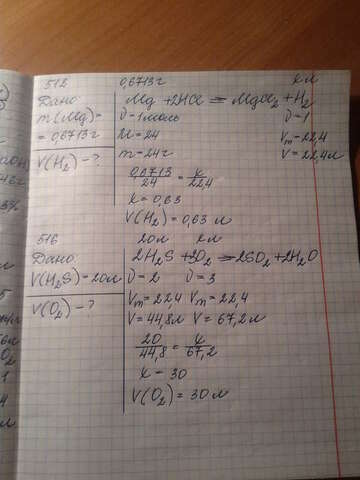 512
Дано
m(Mg)=
= 0,6713 г
V(H₂) – ?
0,6713 г х л
Mg + 2HCl = MgCl₂ + H₂
ν = 1 моль ν = 1
M = 24 Vm = 22,4
m = 24 г V = 22,4 л
0,6713/24 = x/22,4
x = 0,63
V(H₂) = 0,63 л
516
Дано
V(H₂S) = 20 л
V(O₂) – ?
20 л х л
2H₂S + 3O₂ = 2SO₂ + 2H₂O
ν = 2 ν = 3
Vm = 22,4 Vm = 22,4
V = 44,8 л V = 67,2 л
20/44,8 = x/67,2
x – 30
V(O₂) = 30 л